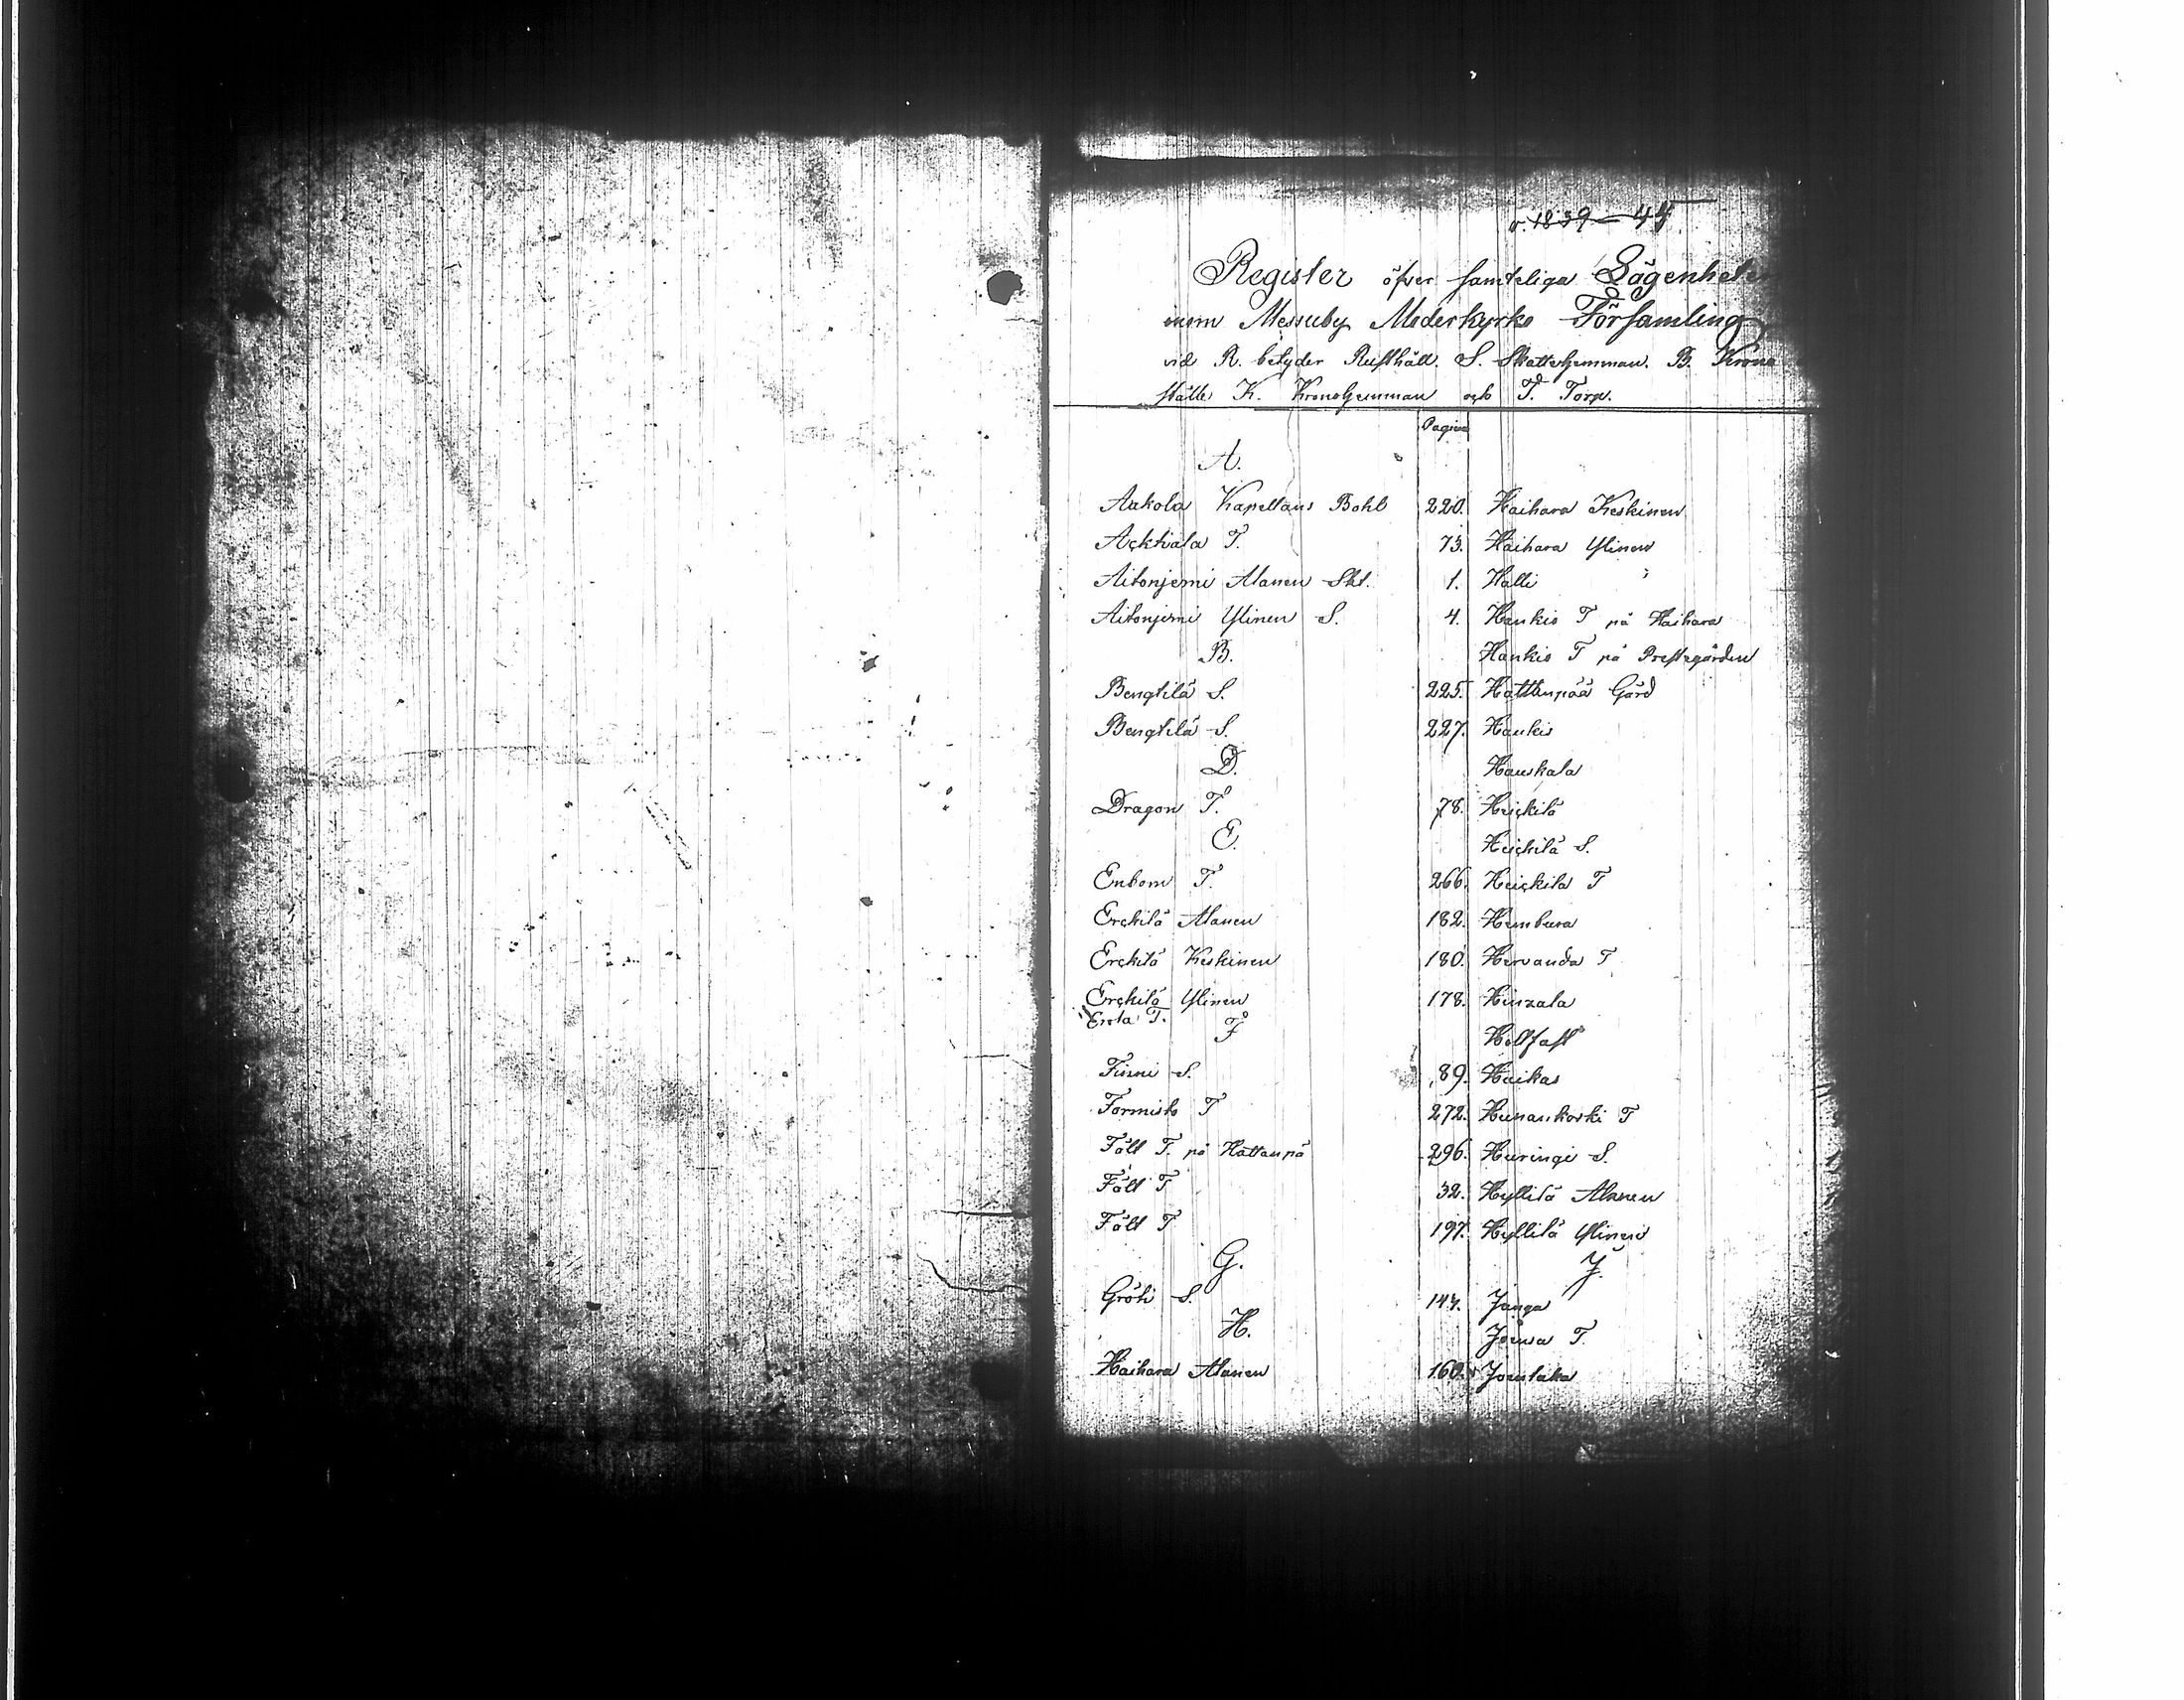 v. 1839-44
Register öfver samteliga Lägenheter
inom Messuby Moderkyrko Församling
vid R. betyder Rusthåll. S. Skattehemman. B. Krono
ställe K. Kronohemman och T. Torp.
Pagina
A.
Aakola Kapellans Bohl 220.
Ackkala T. 73.
Aitonjemi Alanen Skt. 1.
Aitonjemi Ylinen S. 4.
B.
Bengtilä S. 225.
Bengtilä S. 227.
D.
Dragon T. 78.
E.
Enbom T. 266.
Erckilä Alanen 182.
Erckilä Keskinen 180.
Erckilä Ylinen 178.
Erola T.
F
Finni S. 89.
Formisto T 272.
Fält T. på Hattanpä 296.
Fält T 32.
Fält T 197.
G.
Gröti S. 147.
H.
Haihara Alanen 160.
Haihara Keskinen
Haihara Ylinen
Halli
Hankio T på Haihara
Hankio T på Prestegården
Hattanpää Gård
Haukio
Hauskala
Heickilä
Heickilä S.
Heickilä T
Hembura
Hervanda T
Hinzala
Hollfast
Huikas
Hunankoski T
Huringi S.
Hyllilä Alanen
Hyllilä Ylinen
J.
Janga
Jousa T.
Joentaka